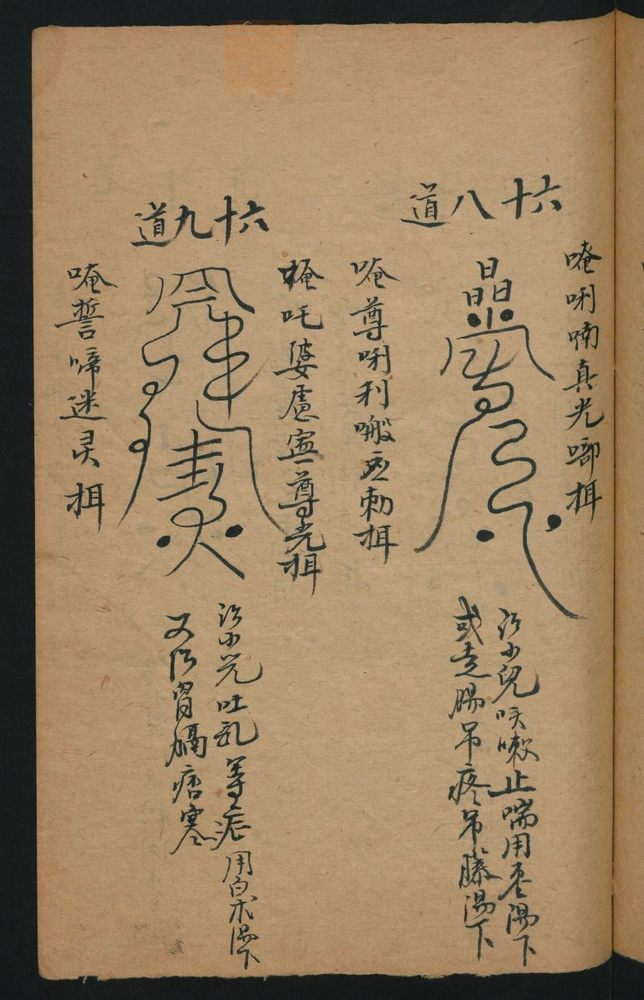 六十八道
唵唎喃真光啣揖
唵尊唎利嘙勅揖
治小兒咳嗽止喘用枣湯下
或走腸吊疼吊藤湯下
六十九道
唵吒婆盧尊光揖
唵誓啼迷灵揖
治小兒吐乱等症用白朮湯下
又治胃膈痞塞